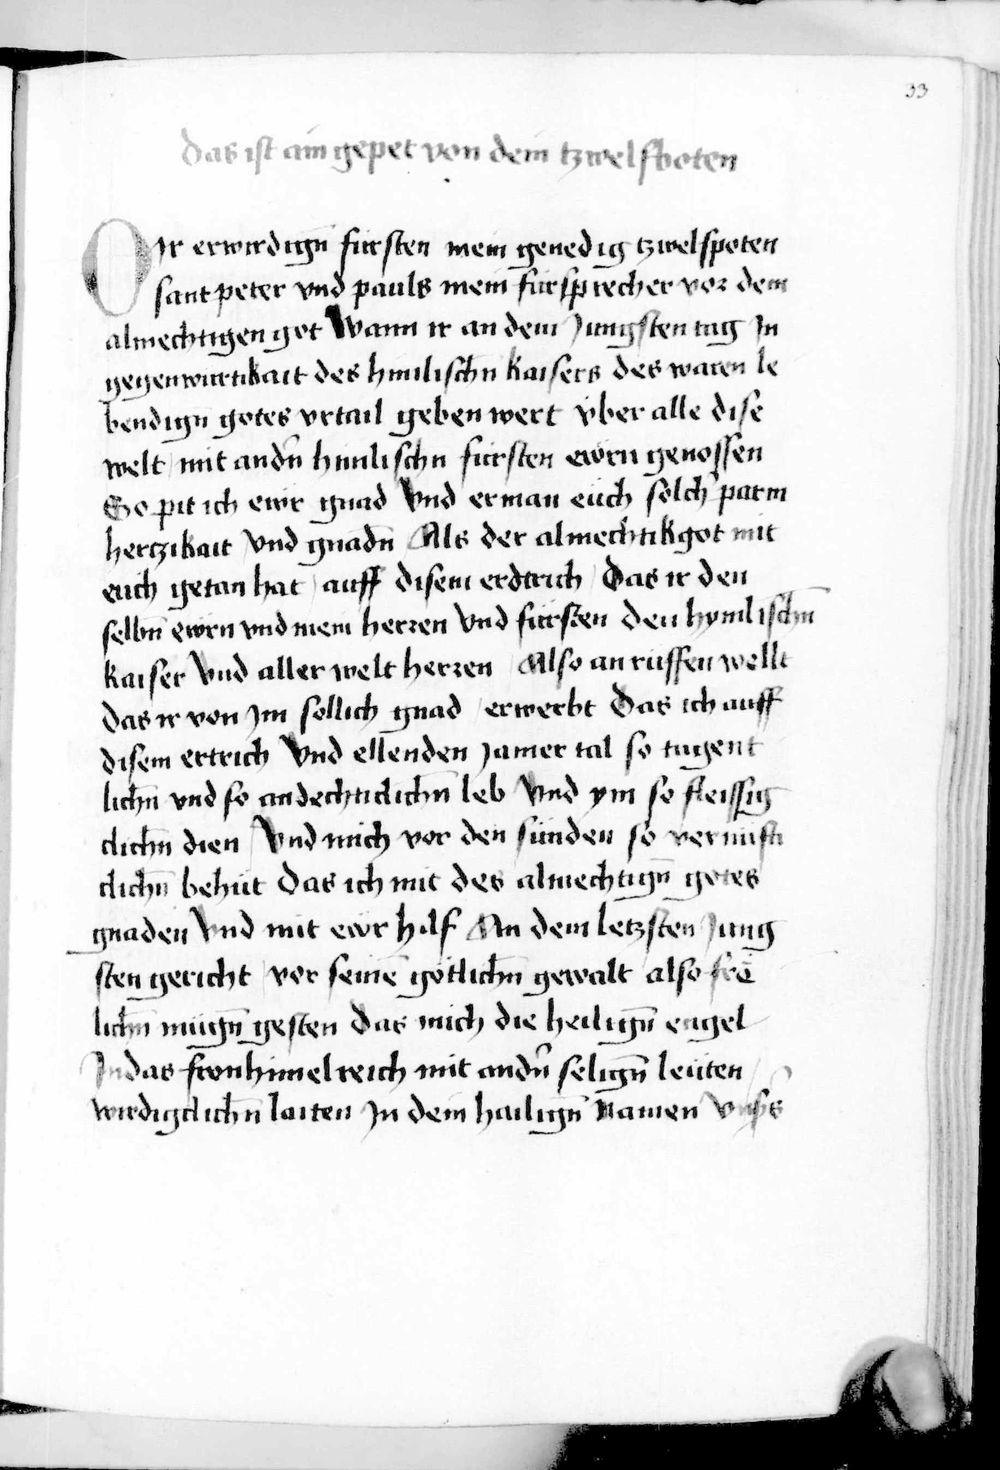 33
Das ist ain gepet von dem tzwelfboten
O Ir erwirdigñ fürsten mein genedig tzwelfpoten
sant peter vnd pauls mein fürsprecher vor dem
almechtigen got Wann ir an dem Jungsten tag In
gegenwurtikait des himlischñ kaisers des waren le
bendigñ gotes vrtail geben wert vber alle dise
welt mit andñ himlischn fürsten ewrn genossen
So pit ich ewr gnad Vnd erman euch solch parm
hertzikait Vnd gnadñ Als der almechtikgot mit
euch getan hat auff disem erdtrich Das ir den
selbñ ewrn vnd mein herren Vnd fürsten den hymlischñ
kaiser Vnd aller welt herren Also an ruffen wellt
das ir von Im sollich gnad erwerbt Das ich auff
disem ertrich Vnd ellenden Jamer tal so tugent
lichñ vnd so andechticlichñ leb Vnd ym so fleissig
clichñ dien Vnd mich vor den sünden so vernüft
clichñ behüt Das ich mit des almechtigñ gotes
gnaden Vnd mit ewr hilf An dem letzsten Jung
sten gericht vor seinē götlichñ gewalt also frö
lichñ mügñ gesten Das mich die heiligñ engel
In das fronhimelreich mit andñ seligñ leüten
wirdigclichñ laiten In dem hailigñ Namen